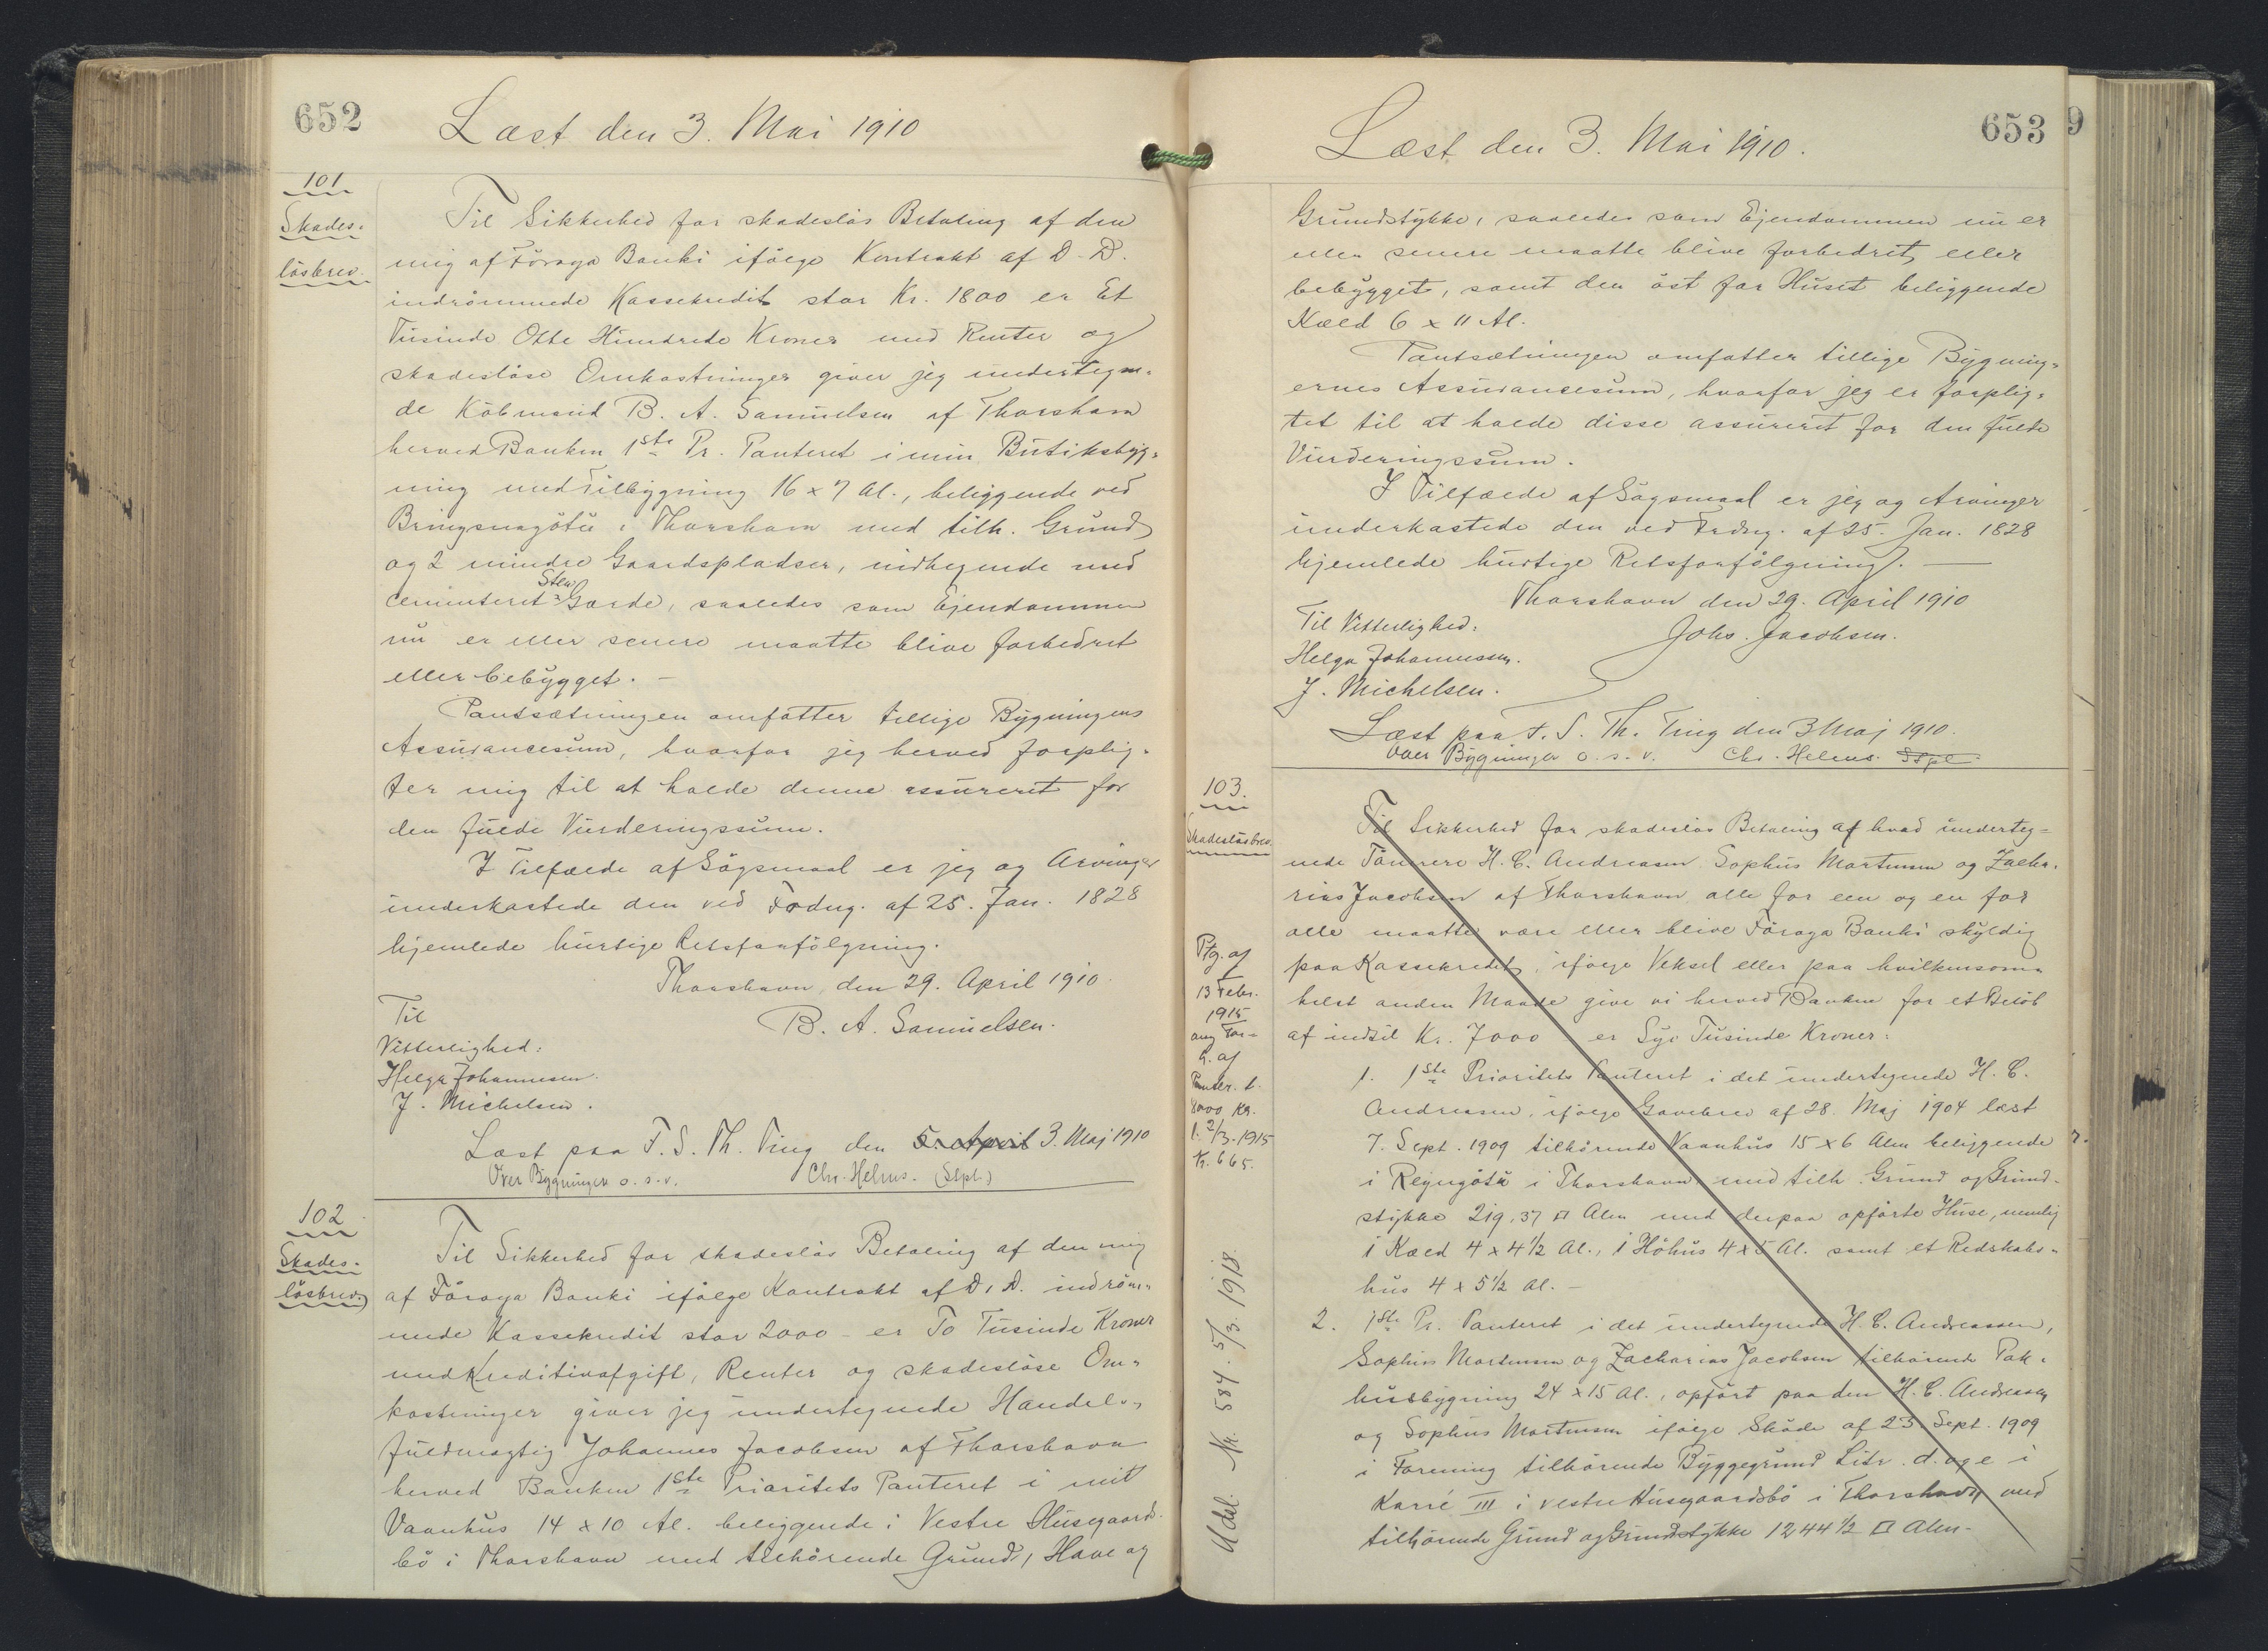 652
Læst den 3. Mai 1910
101
Skades-
lösbrev.
Til Sikkerhed for skadeslös Betaling af den
mig af Föroya Banki ifölge Kontrakt af D. D.
indrömmede Kassekredit stor Kr. 1800 er Et
Tusinde Otte Hundrede Kroner med Renter og
skadeslöse Omkostninger giver jeg undertegne-
de Köbmand B. A. Samuelsen af Thorshavn
herved Banken 1ste Pr. Panteret i min Butiksbyg-
ning med Tilbygning 16 x 7 Al., beliggende ved
Bringsnagötu i Thorshavn med tilh. Grund
og 2 mindre Gaardspladser, indhegnede med
cementeret Sten-Gærde, saaledes som Ejendommen
nu er eller senere maatte blive forbedret
eller bebygget. -
Pantsætningen omfatter tillige Bygningens
Assurancesum, hvorfor jeg herved forplig-
ter mig til at holde denne assureret for
den fulde Vurderingssum.
I Tilfælde af Sögsmaal er jeg og Arvinger
underkastede den ved Fodng. af 25. Jan. 1828
hjemlede hurtige Retsforfölgning.
Thorshavn, den 29. April 1910.
Til
Vitterlighed:
B. A. Samuelsen.
Helga Johannesen.
J. Michelsen.
Læst paa F. S. Th. Ting den 5. April 3. Maj 1910
Over Bygningen o. s. v. Chr. Helms. (Stpl.)
102
Skades-
lösbrev
Til Sikkerhed for skadeslös Betaling af den mig
af Föroya Banki ifölge Kontrakt af D. D. indröm-
mede Kassekredit stor 2000 - er To Tusinde Kroner
med Kreditivafgift, Renter og skadeslöse Om-
kostninger giver jeg undertegnede Handels-
fuldmægtig Johannes Jacobsen af Thorshavn
herved Banken 1ste Prioritets Panteret i mit
Vaanhus 14 x 10 Al. beliggende i Vestre Husegaards-
bö i Thorshavn med tilhörende Grund, Have og
653
9
Læst den 3. Mai 1910.
Grundstykke, saaledes som Ejendommen nu er
eller senere maatte blive forbedret, eller
bebygget, samt den öst for Huset beliggende
Kæld 6 x 11 Al.
Pantsætningen omfatter tillige Bygning-
ernes Assurancesum, hvorfor jeg er forplig-
tet til at holde disse assureret for den fulde
Vurderingssum.
I Tilfælde af Sögsmaal er jeg og Arvinger
underkastede den ved Frdng. af 25. Jan. 1828
hjemlede hurtige Retsforfölgning. —
Thorshavn den 29. April 1910
Til Vitterlighed:
Johs. Jacobsen.
Helga Johannesen.
J. Michelsen.
Læst paa F. S. Th. Ting den 3 Maj 1910.
Over Bygninger o. s. v. Chr. Helms. Stpl.
103.
Skadeslösbrev.
Til Sikkerhed for skadeslös Betaling af hvad underteg-
nede Tömrere H. C. Andreasen Sophus Mortensen og Zacha-
rias Jacobsen af Thorshavn alle for een og en for
alle maatte være eller blive Föroya Banki skyldig
paa Kassekredit, ifölge Veksel eller paa hvilkensom-
helst anden Maade give vi herved Banken for et Belöb
af indtil Kr. 7000 er Syv Tusinde Kroner:
1. 1ste Prioritets Panteret i det undertegnede H. C.
Andreasen, ifölge Gavebrev af 28. Maj 1904 læst
7. Sept. 1909 tilhörende Vaanhus 15 x 6 Alen beliggende
i Reyngötu i Thorshavn, med tilh. Grund og Grund-
stykke 219,37 □ Alen med derpaa opförte Huse, nemlig
1 Kæld 4 x 4½ Al., 1 Höhus 4 x 5 Al. samt et Redskabs-
hus 4 x 5½ Al. -
2. 1ste Pr. Panteret i det undertegnede H. C. Andreassen,
Sophus Mortensen og Zacharias Jacobsen tilhörende Pak-
husbygning 24 x 15 Al., opfört paa den H. C. Andreasen
og Sophus Mortensen ifölge Sköde af 23. Sept. 1909
i Forening tilhörende Byggegrund Litr. d. og e i
Karré III i vestre Husegaardsbö i Thorshavn med
tilhörende Grund og Grundstykke 1244½ □ Alen-
Ptg. af
13 Febr.
1915
ang For-
h. af
Panter. t.
8000 Kr.
l. 2/3. 1915
Nr. 665.
Udsl. Nr. 584. 5/3. 1918.